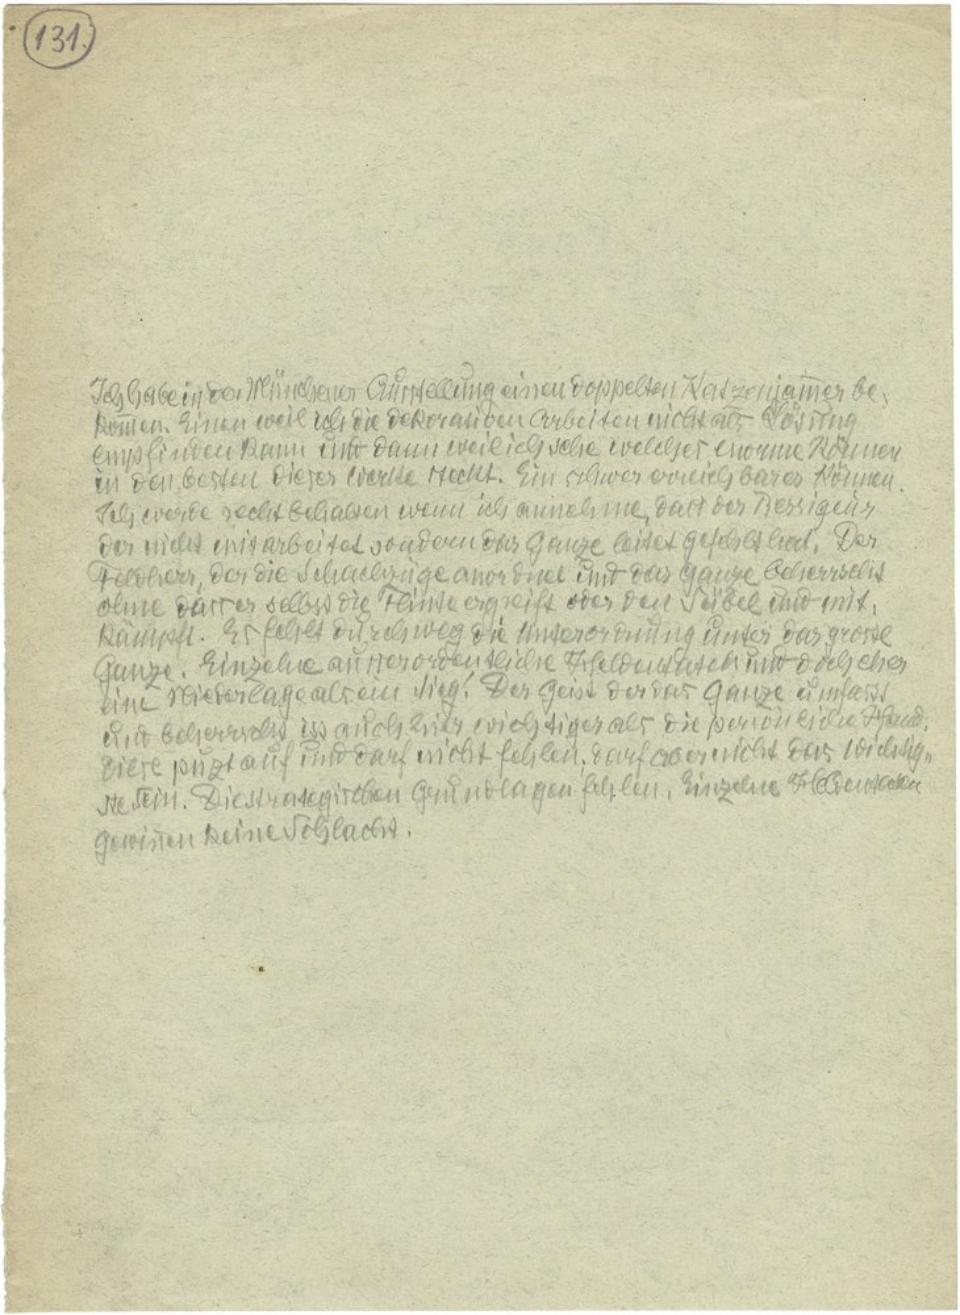 131.
Ich habe in der Münchener Ausstellung einen doppelten Katzenjam̅er be-
kom̅en. Einen weil ich die dekorativen Arbeiten nicht als Lösung
empfinden kann und dann weil ich sehe welches enorme Können
in den besten dieser Werke steckt. Ein schwer erreichbares Können.
Ich werde recht behalten wenn ich annehme, dass der Regisseur
der nicht mitarbeitet sondern das Ganze leitet gefehlt hat. Der
Feldherr, der die Schachzüge anordnet und das Ganze beherrscht
ohne dass er selbst die Flinte ergreift oder den Säbel und mit-
kämpft. Es fehlt durchweg die Unterordnung unter das grosse
Ganze. Einzelne ausserordentliche Heldentaten und doch eher
eine Niederlage als ein Sieg! Der Geist der das Ganze umfasst
und beherrscht ist auch hier wichtiger als die persönliche Hand.
Diese putzt auf und darf nicht fehlen, darf aber nicht das Wichtig-
ste sein. Die strategischen Grundlagen fehlen. Einzelne Heldentaten
gewin̅en keine Schlacht.